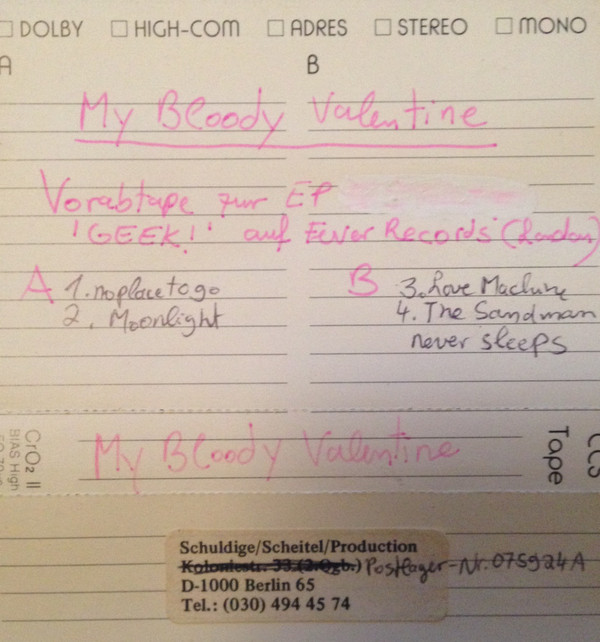 DOLBY HIGH-COM ADRES STEREO MONO
A B
My Bloody Valentine
Vorabtape zur EP
'GEEK!' auf Fever Records (London)
A 1. no place to go
2. Moonlight
B 3. Love Machine
4. The Sandman
never sleeps
CrO2 II
BIAS High
My Bloody Valentine
Tape
Schuldige/Scheitel/Production
Koloniestr. 33 (2.Qgb.) Postlager-Nr. 075924 A
D-1000 Berlin 65
Tel.: (030) 494 45 74